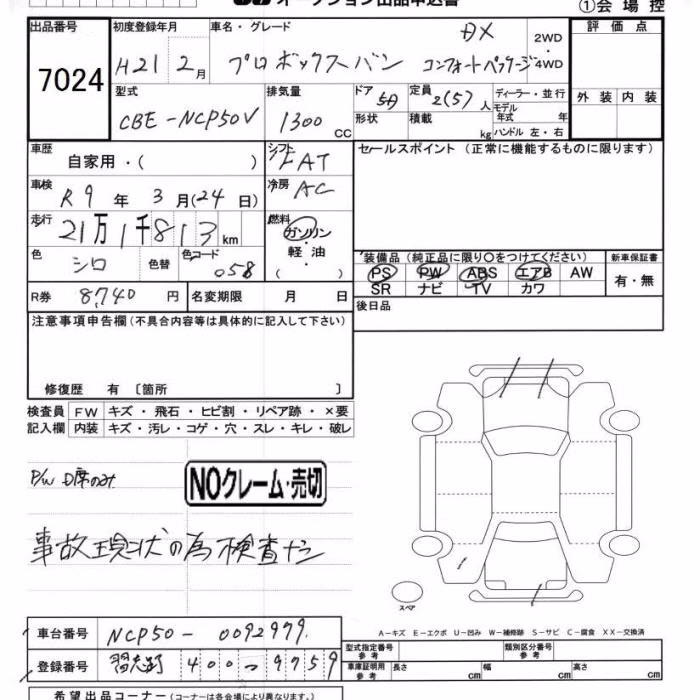 オークション出品申込書
①会場控
出品番号 初度登録年月 車名・グレード DX 2WD・4WD 評価点
7024 H21 2月 プロボックスバン コンフォートパッケージ
型式 排気量 ドア 定員 ディーラー・並行 外装 内装
CBE-NCP50V 1300 cc 5D 2(5)人 モデル年式 年
形状 積載 kg ハンドル 左・右
車歴 自家用・( ) シフト FAT セールスポイント (正常に機能するものに限ります)
車検 R9年 3月(24日) 冷房 AC
走行 21万1千813km 燃料 ガソリン・軽油・( )
色 シロ 色替 色コード 058
装備品 (純正品に限り〇をつけてください) 新車保証書
PS PW ABS エアB AW 有・無
SR ナビ TV カワ
R券 8740円 名変期限 月 日 後日品
注意事項申告欄 (不具合内容等は具体的に記入して下さい)
修復歴 有 〔箇所 〕
検査員 FW キズ・飛石・ヒビ割・リペア跡・×要
記入欄 内装 キズ・汚レ・コゲ・穴・スレ・キレ・破レ
P/W D席のみ
NOクレーム・売切
事故現状の為検査ナシ
スペア
A-キズ E-エクボ U-凹み W-補修跡 S-サビ C-腐食 XX-交換済
車台番号 NCP50-0092979
登録番号 習志野 400 ~ 9759
型式指定番号 参考 類別区分番号 参考
車庫証明用 参考 長さ cm 幅 cm 高さ cm
希望出品コーナー (コーナーは各会場により異なります。)